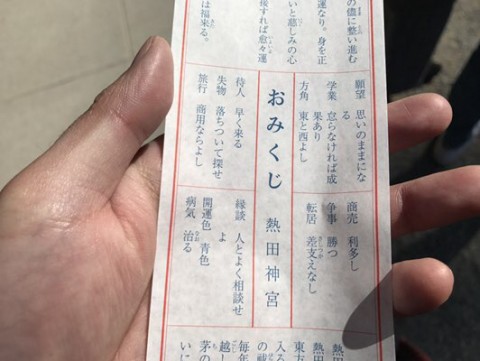 の儘に整い進む
運なり。身を正
いと慈しみの心
接すれば愈々運
は福来る。
願望 思いのままにな
る
学業 怠らなければ成
果あり
方角 東と西よし
商売 利多し
争事 勝つ
転居 差支えなし
おみくじ 熱田神宮
待人 早く来る
失物 落ちついて探せ
旅行 商用ならよし
縁談 人とよく相談せ
よ
開運色 青色
病気 治る
熱田
熱田
東方
入ろ
の
毎年
越し
茅の
いに